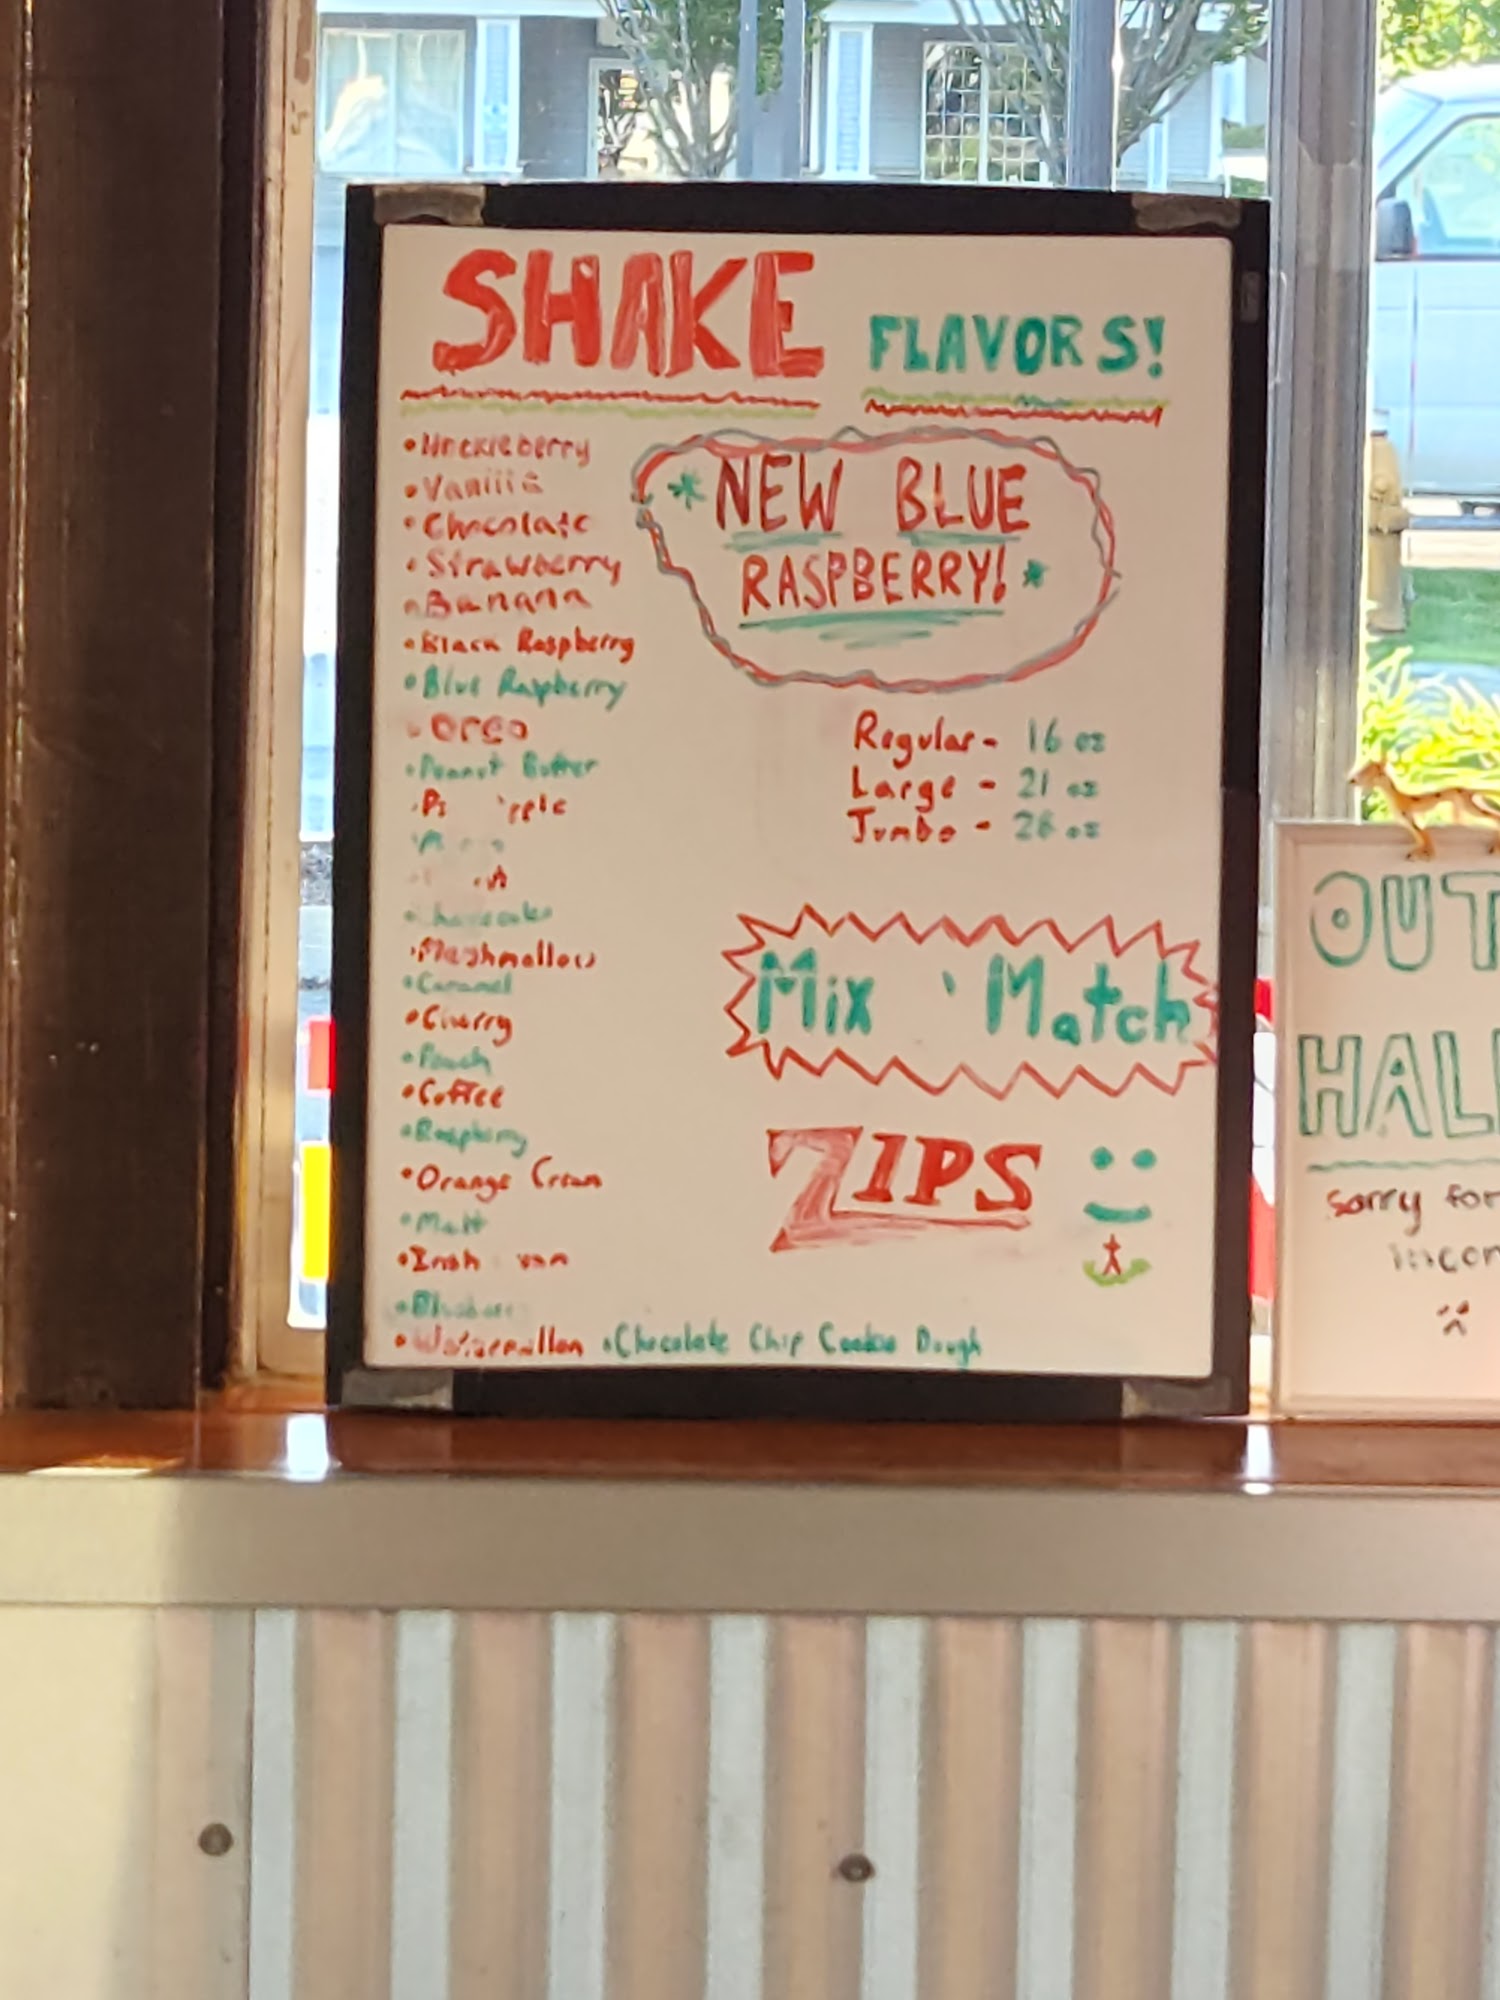 SHAKE FLAVORS!
•Huckleberry
•Vanilla
•Chocolate
•Strawberry
•Banana
•Black Raspberry
•Blue Raspberry
•Oreo
•Peanut Butter
•Marshmallow
•Caramel
•Cherry
•Peach
•Coffee
•Raspberry
•Orange Cream
•Malt
•Irish
•Watermillon •Chocolate Chip Cookie Dough
*NEW BLUE
RASPBERRY!*
Regular - 16 oz
Large - 21 oz
Jumbo - 28 oz
Mix ' Match
ZIPS
OUT
HAL
Sorry for
incon